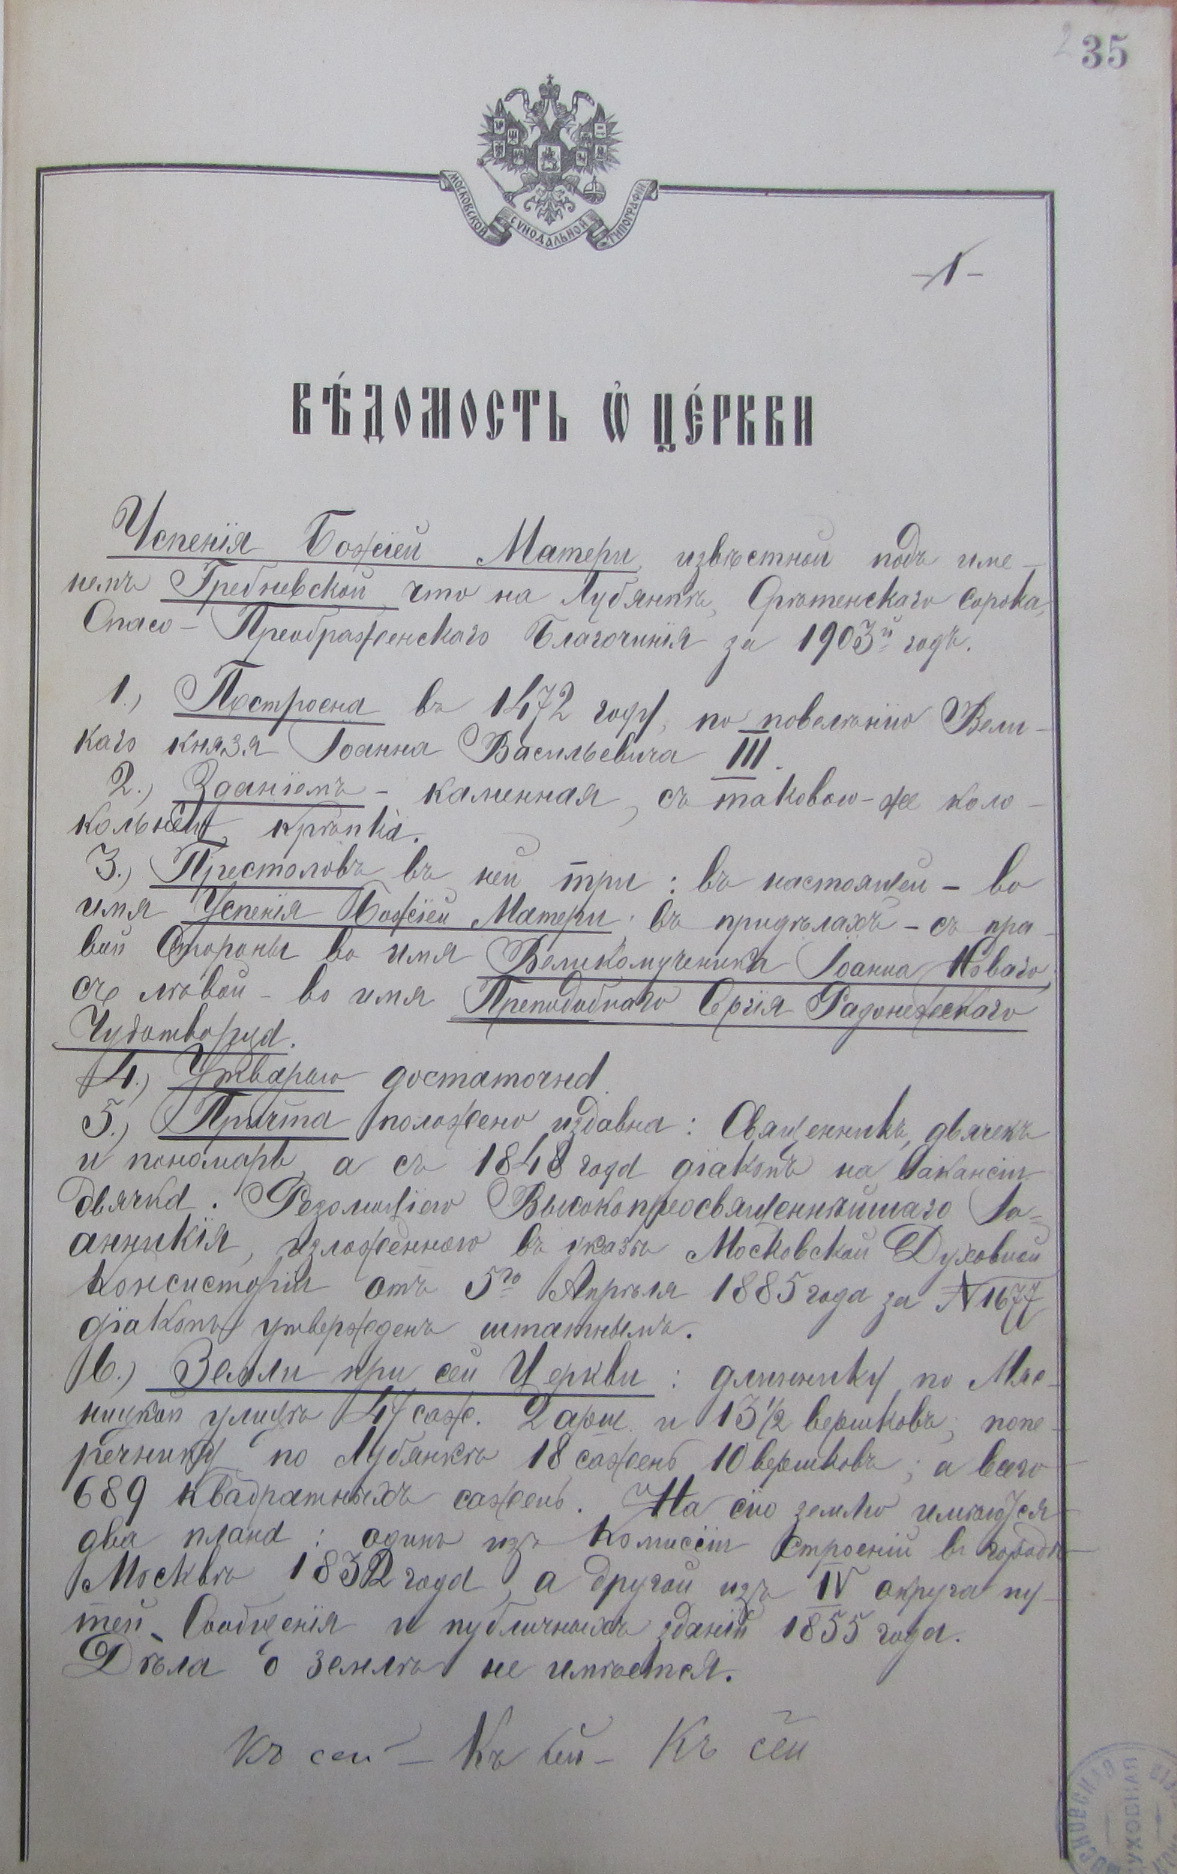 2 35
МОСКОВСКОЙ СѴНОДАЛЬНОЙ ТИПОГРАФІИ
-1-
ВѢ́ДОМОСТЬ Ѡ҆ ЦЕ́РКВИ
Успенія Божіей Матери, извѣстной подъ име-
немъ Гребневской, что на Лубянкѣ, Срѣтенскаго сорока,
Спасо-Преображенскаго Благочинія за 1903й годъ.
1.) Построена въ 1472 году, по повелѣнію Вели-
каго князя Іоанна Васильевича III.
2.) Зданіемъ - каменная, съ таковою-же коло-
кольнею, крѣпка.
3.) Престоловъ въ ней три: въ настоящей - во
имя Успенія Божіей Матери; въ придѣлахъ - съ пра-
вой стороны во имя Великомученика Іоанна Новаго,
съ лѣвой - во имя Преподобнаго Сергія Радонежскаго
Чудотворца.
4.) Утварью достаточна.
5.) Причта положено издавна: Священникъ, дьячекъ
и пономарь, а съ 1848 года діаконъ на вакансіи
дьячка. Резолюціею Высокопреосвященнѣйшаго Іо-
анникія, изложенною въ указѣ Московской Духовной
Консисторіи отъ 5го Апрѣля 1885 года за № 1677,
діаконъ утвержденъ штатнымъ.
6.) Земли при сей Церкви: длиннику по Мяс-
ницкой улицѣ 47 саж. 2 арш. и 13 1/2 вершковъ; попе-
речнику по Лубянкѣ 18 сажень 10 вершковъ; а всего
689 квадратныхъ сажень. На сію землю имѣются
два плана: одинъ изъ Комиссіи строеній въ городѣ
Москвѣ 1832 года, а другой изъ IV округа пу-
тей Сообщенія и публичныхъ зданій 1855 года.
Дѣла о землѣ не имѣется.
Къ сей - Къ сей - Къ сей